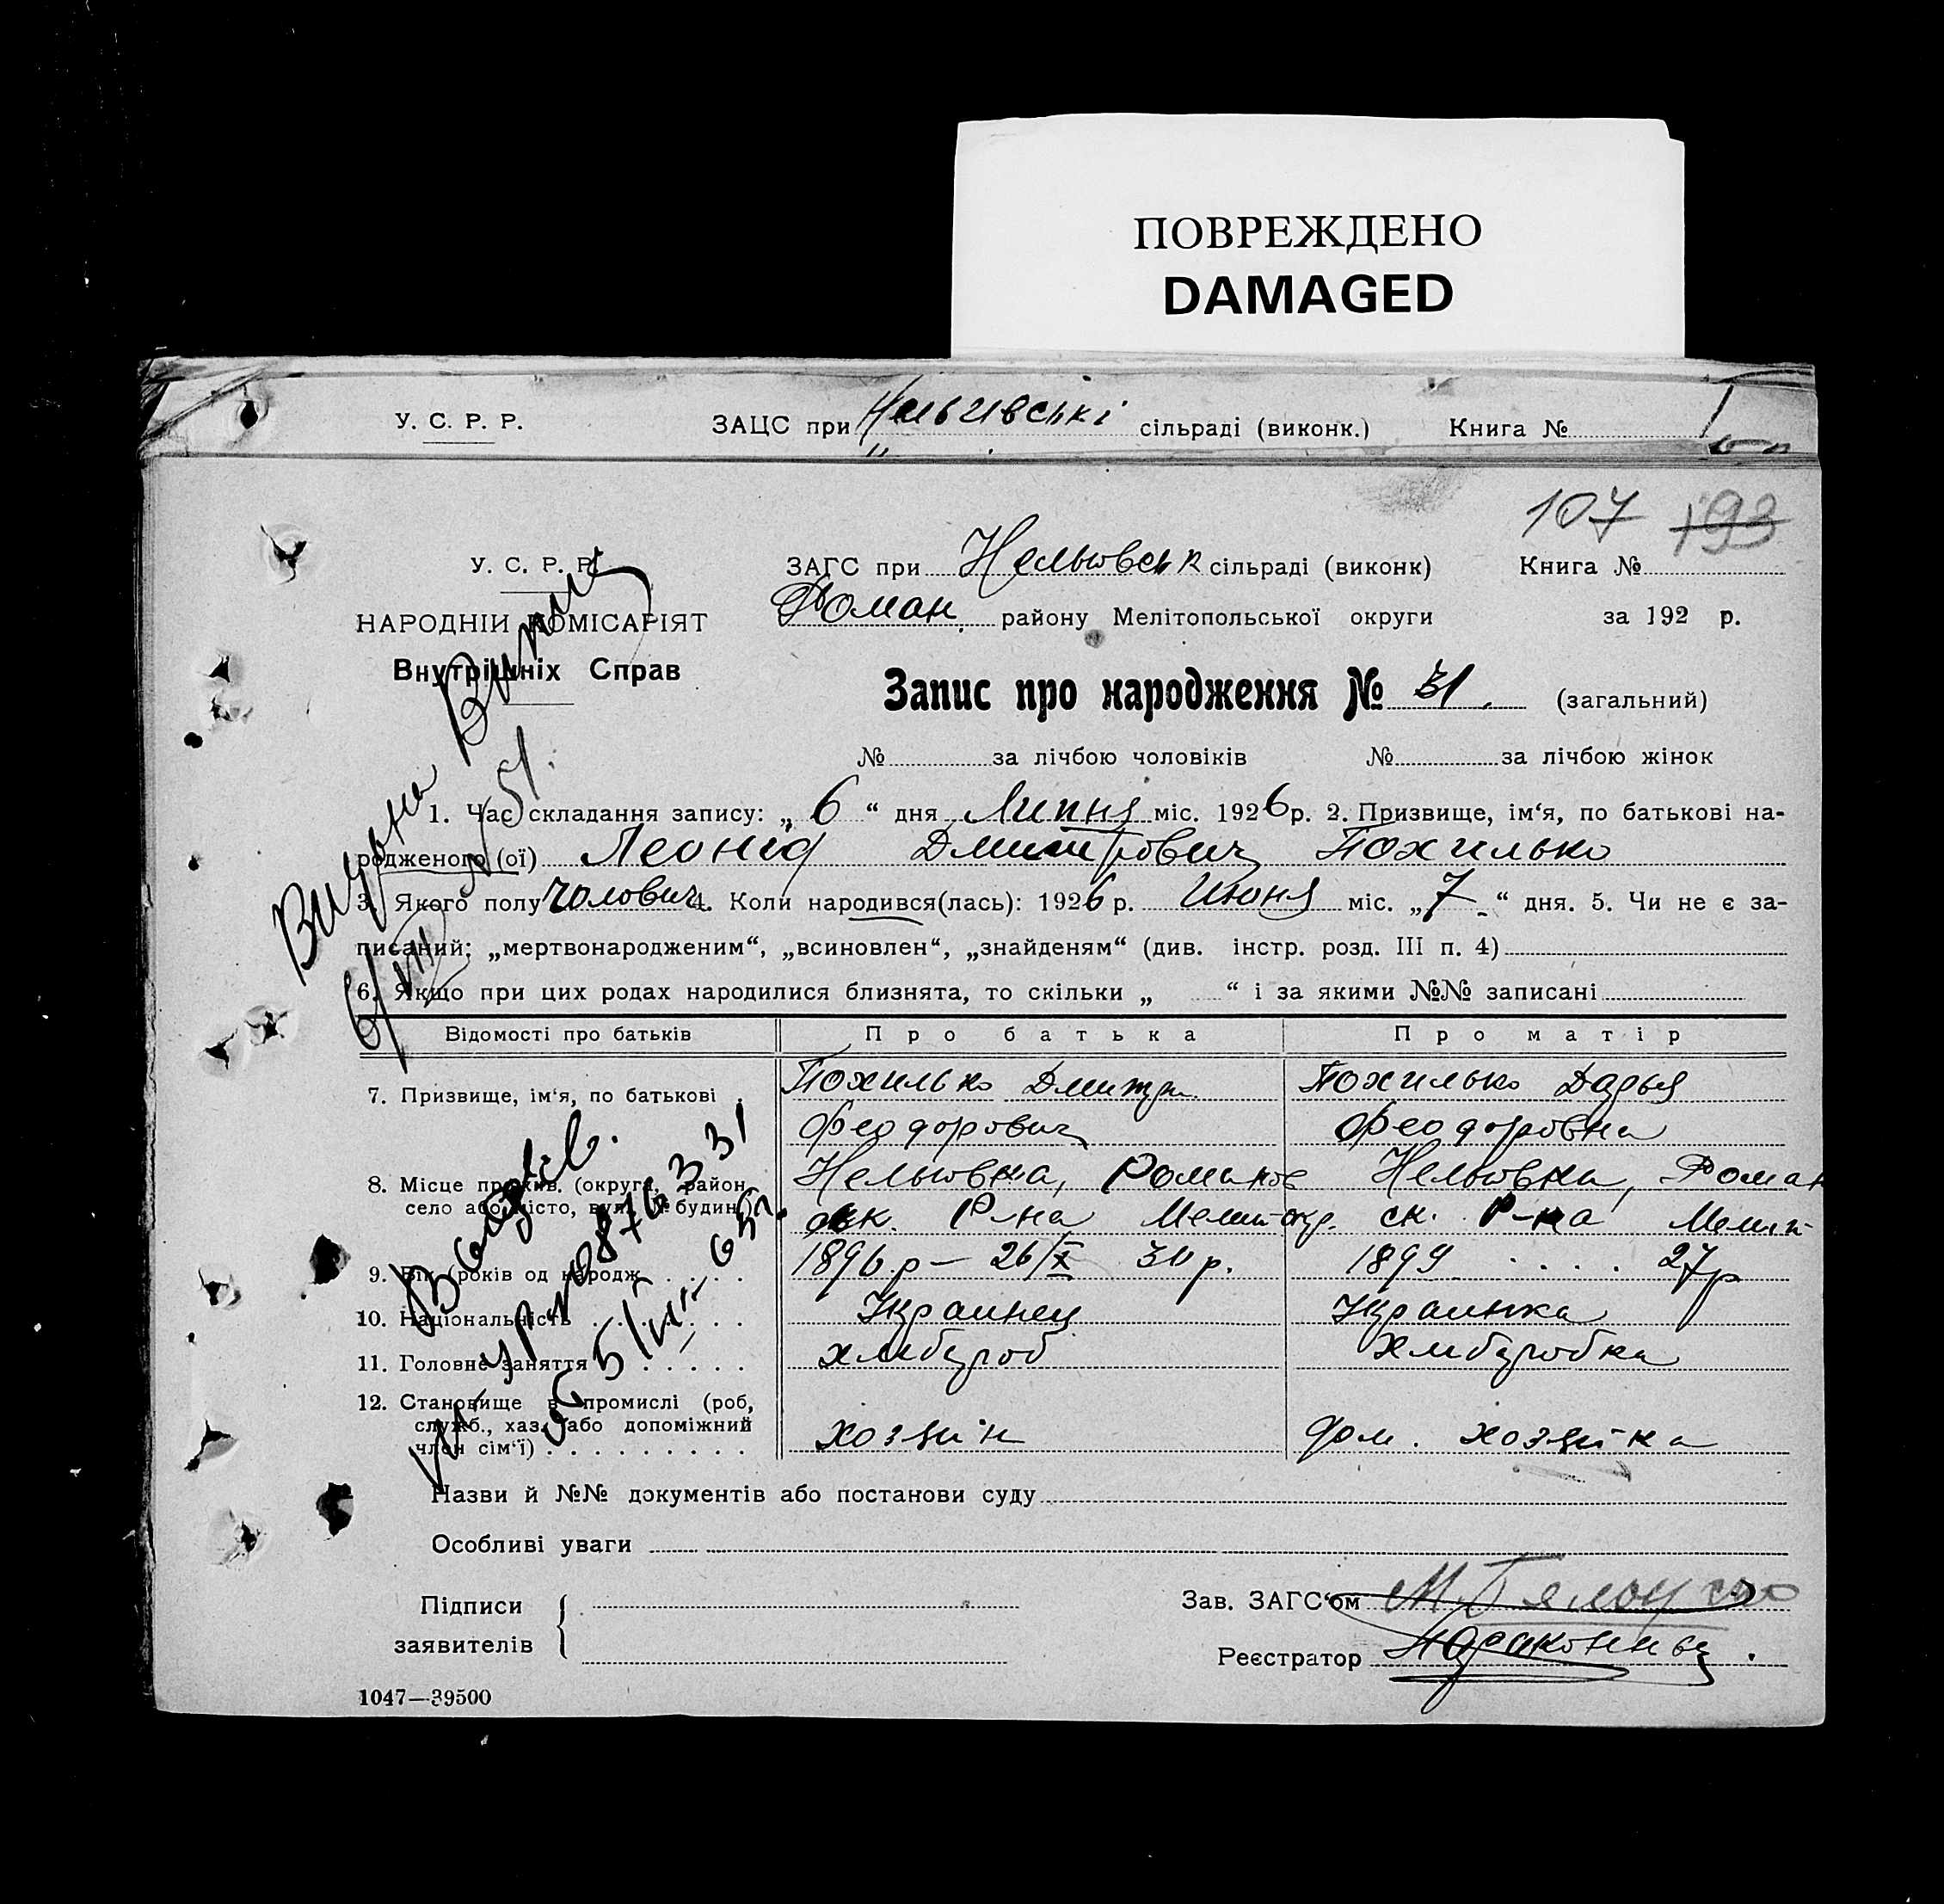 ПОВРЕЖДЕНО
DAMAGED
У. С. Р. Р. ЗАЦС при сільраді (виконк.) Книга №
107 193
У. С. Р. Р. ЗАГС при Нельговськ сільраді (виконк) Книга №
НАРОДНІЙ КОМІСАРІЯТ Роман. району Мелітопольської округи за 192 р.
Внутрішніх Справ
Запис про народження № 31. (загальний)
№ за лічбою чоловіків № за лічбою жінок
Видана Випис
6/VII N 51.
1. Час складання запису: „ 6 “ дня Липня міс. 1926 р. 2. Призвище, ім‘я, по батькові на-
родженого (ої) Леонід Дмитрович Похилько
3. Якого полу чолович. 4. Коли народився(лась): 1926 р. Июня міс. „ 7 “ дня. 5. Чи не є за-
писаний: „мертвонародженим“, „всиновлен“, „знайденям“ (див. інстр. розд. III п. 4)
6. Якщо при цих родах народилися близнята, то скільки „ “ і за якими №№ записані
Відомості про батьків Про батька Про матір
7. Призвище, ім‘я, по батькові . Похилько Дмитри. Похилько Дарья
Феодорович Феодоровна
8. Місце прожив. (округа, район, Нельговка, Романов Нельговка, Роман
село або місто, вул. № будин.) ск. Р-на Мелит окр. ск. Р-на Мелит
9. Вік (років од народж. 1896 р — 26/X 30 р. 1899 . . . . 27 р
10. Національність Украинец Украинка
11. Головне заняття хлибороб хлиборобка
12. Становище в промислі (роб, служб., хаз. або допоміжний
член сім‘ї) хозяін дом. хозяйка
Назви й №№ документів або постанови суду
Особливі уваги
Підписи
заявителів
Зав. ЗАГС‘ом
Реєстратор
1047—39500